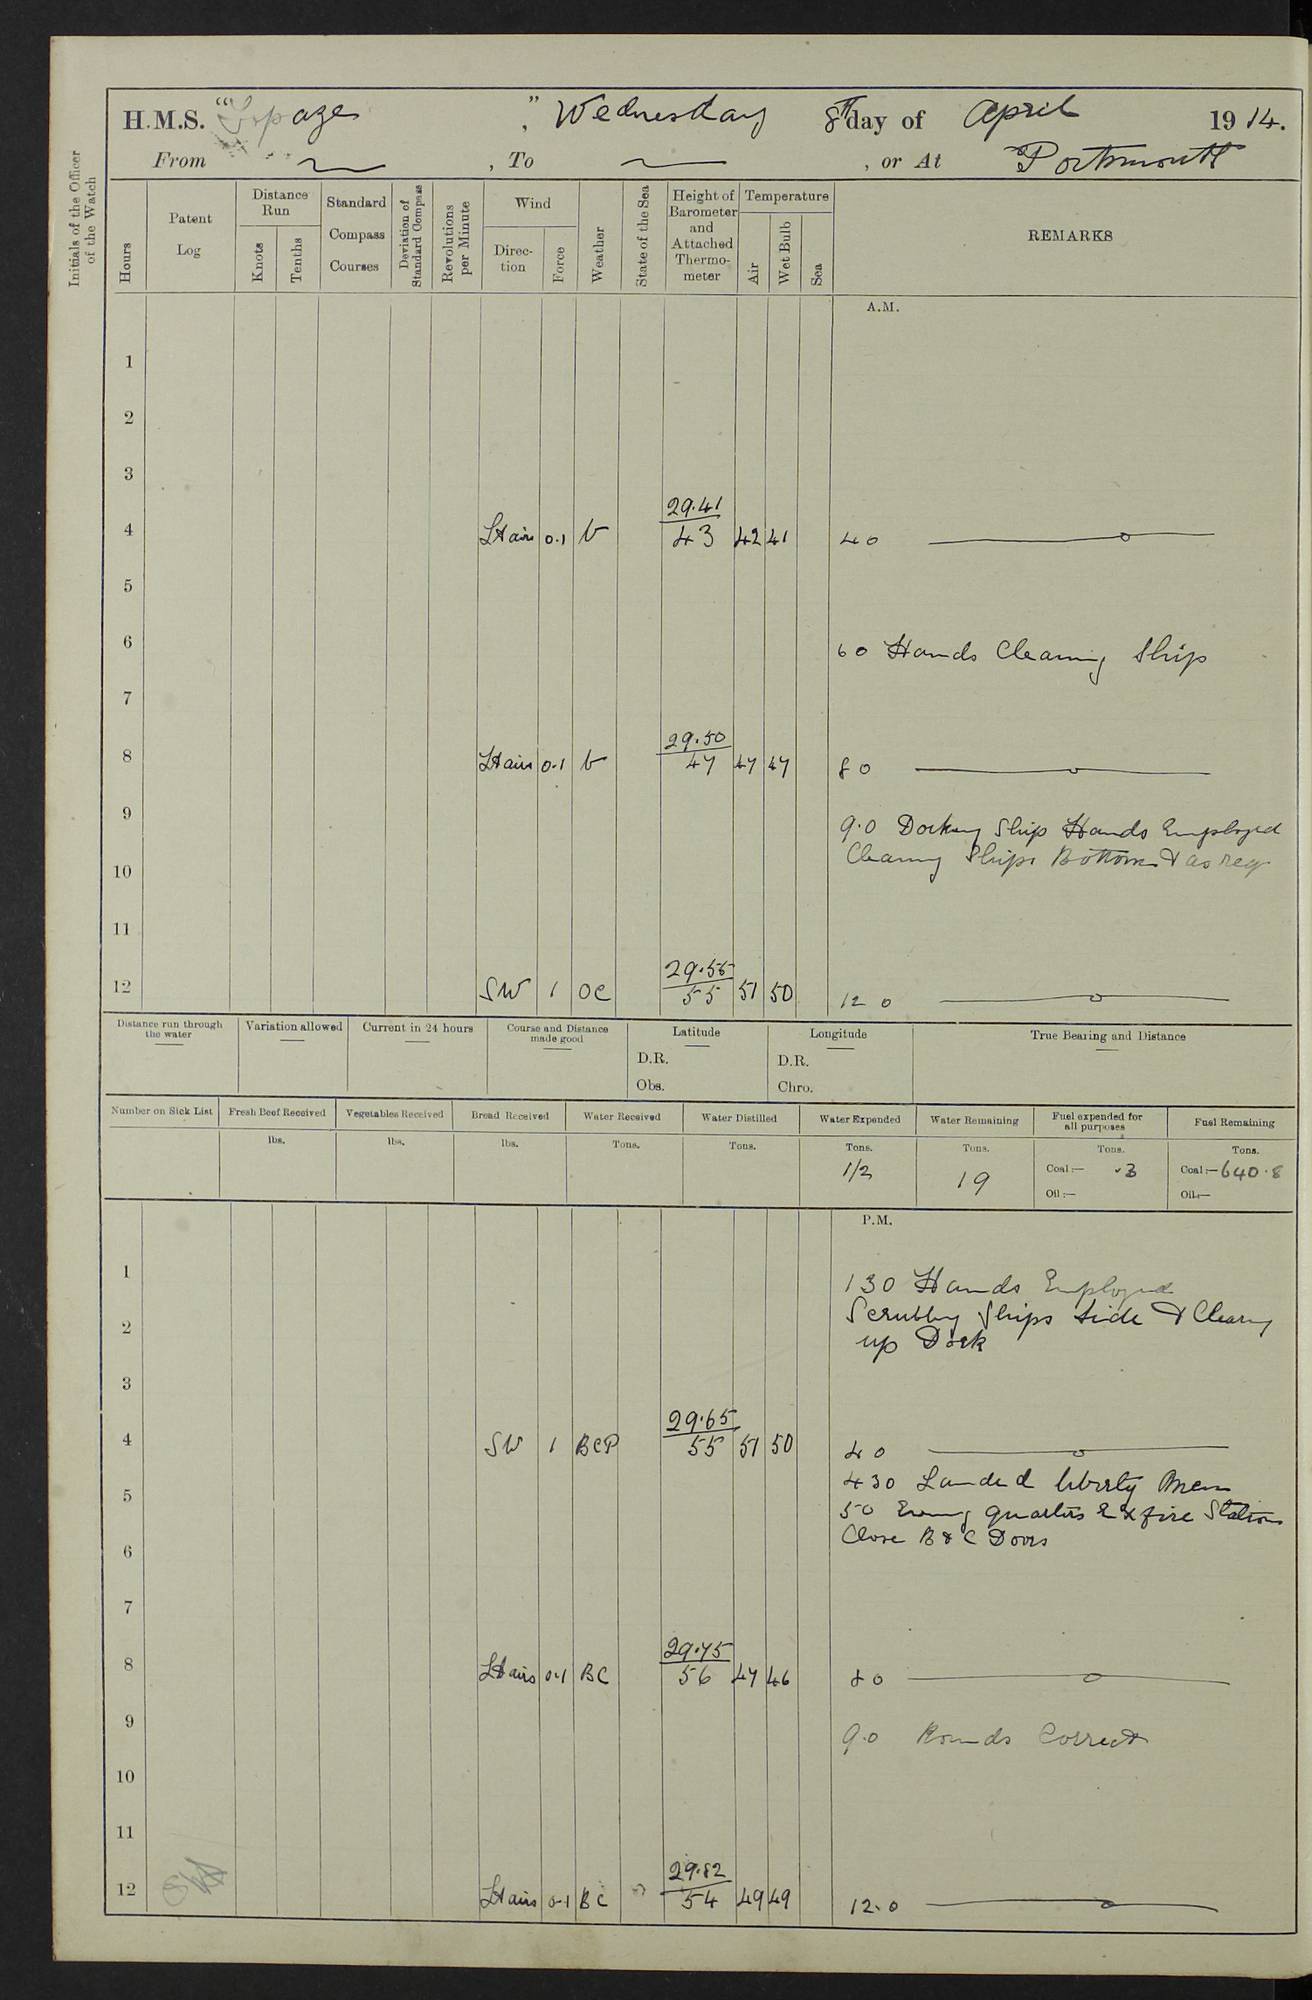 H.M.S. "Topaze", Wednesday 8th day of April 1914.
From ~, To ~, or At Portsmouth
Initials of the Officer of the Watch
Hours
Patent Log
Distance Run
Knots
Tenths
Standard Compass Courses
Deviation of Standard Compass
Revolutions per Minute
Wind
Direction
Force
Weather
State of the Sea
Height of Barometer and Attached Thermometer
Temperature
Air
Wet Bulb
Sea
REMARKS
A.M.
1
2
3
4 Lt airs 0.1 b 29.41 43 42 41 4 0
5
6 6 0 Hands Cleaning Ship
7
8 Lt airs 0.1 b 29.50 47 47 47 8 0
9 9.0 Docking Ship Hands Employed
Cleaning Ships Bottom & as req
10
11
12 SW 1 OC 29.56 55 51 50 12 0
Distance run through the water
Variation allowed
Current in 24 hours
Course and Distance made good
Latitude
D.R.
Obs.
Longitude
D.R.
Chro.
True Bearing and Distance
Number on Sick List
Fresh Beef Received lbs.
Vegetables Received lbs.
Bread Received lbs.
Water Received Tons.
Water Distilled Tons.
Water Expended Tons. 1/2
Water Remaining Tons. 19
Fuel expended for all purposes Tons.
Coal:— .3
Oil:—
Fuel Remaining Tons.
Coal:— 640.8
Oil:—
P.M.
1 1 30 Hands Employed
2 Scrubbg Ships Side & Clearng
up Dock
3
4 SW 1 BCP 29.65 55 51 50 4 0
4 30 Landed liberty Men
5 5 0 Evening quarters Ex fire Stations
Close B & C Doors
6
7
8 Lt airs 0.1 BC 29.75 56 47 46 8 0
9 9.0 Rounds Correct
10
11
12 Lt airs 0.1 BC 29.82 54 49 49 12.0